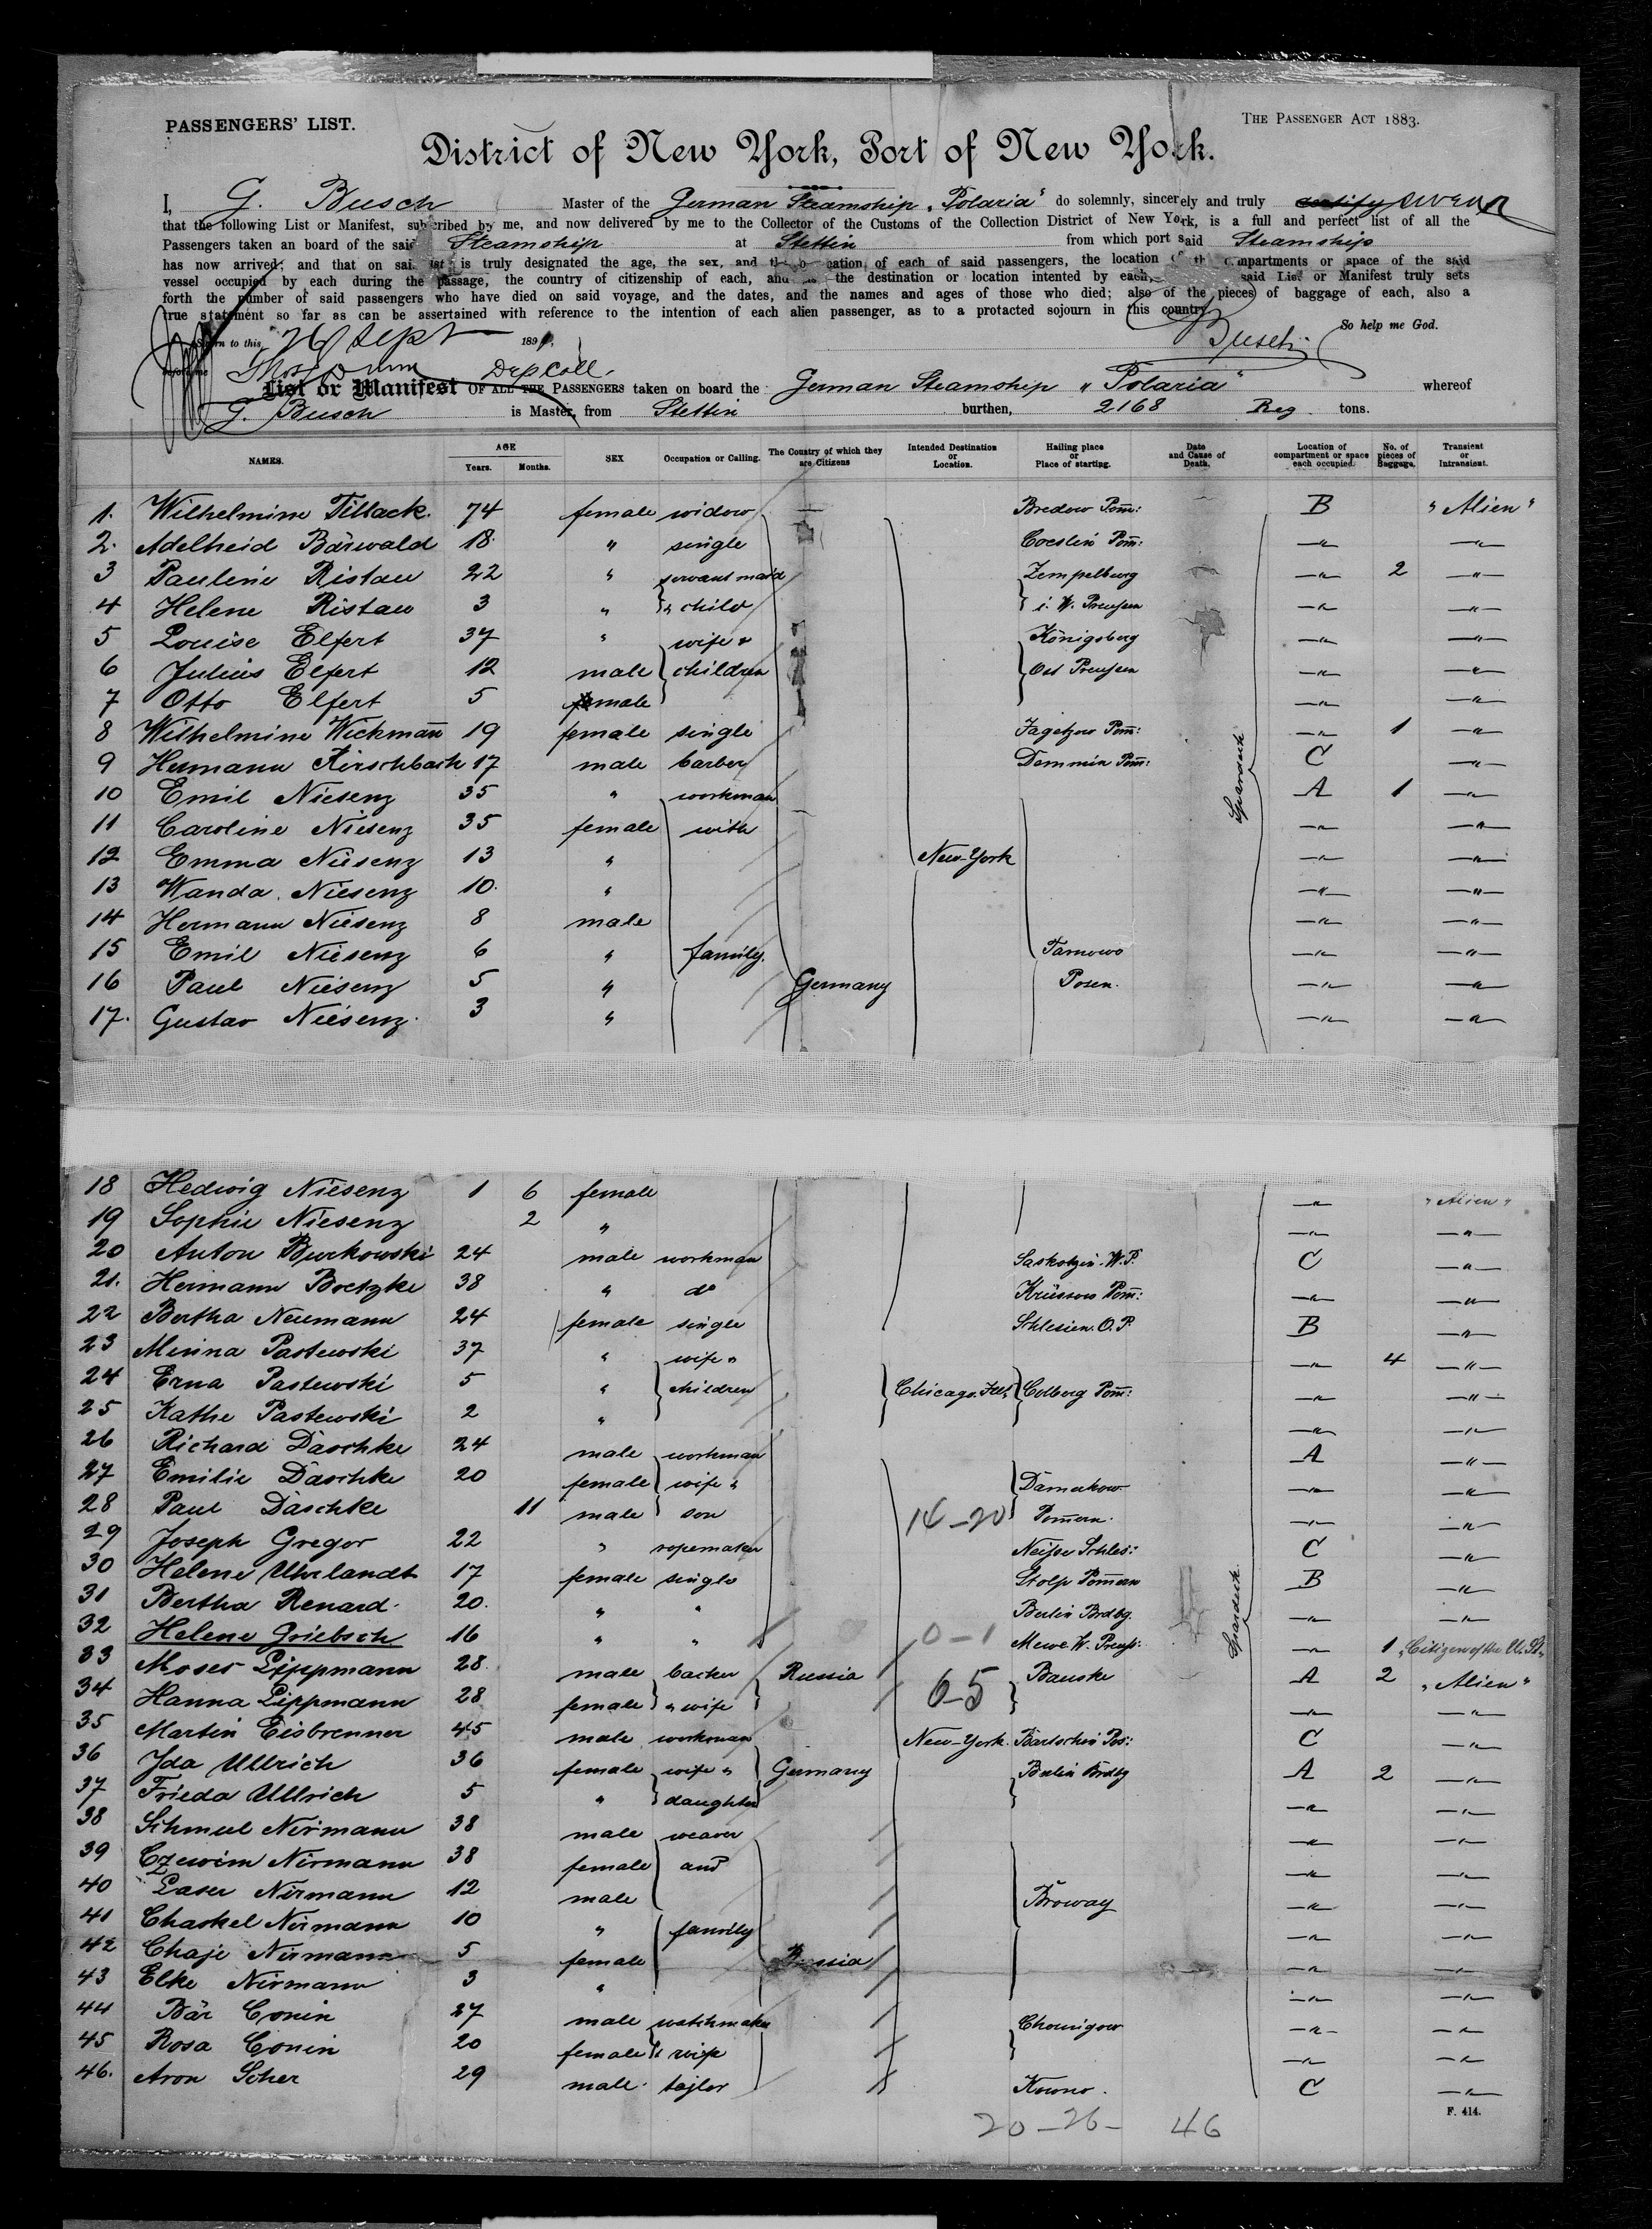 PASSENGERS' LIST.
THE PASSENGER ACT 1883.
District of New York, Port of New York.
I, G. Busch Master of the German Steamship „Polaria" do solemnly, sincerely and truly certify swear
that the following List or Manifest, subscribed by me, and now delivered by me to the Collector of the Customs of the Collection District of New York, is a full and perfect list of all the
Passengers taken an board of the said Steamship at Stettin from which port said Steamship
has now arrived; and that on said list is truly designated the age, the sex, and the occupation of each of said passengers, the location of the compartments or space of the said
vessel occupied by each during the passage, the country of citizenship of each, and the destination or location intented by each, said List or Manifest truly sets
forth the number of said passengers who have died on said voyage, and the dates, and the names and ages of those who died; also of the pieces of baggage of each, also a
true statement so far as can be ascertained with reference to the intention of each alien passenger, as to a protacted sojourn in this country.
So help me God.
Sworn to this 26 Sept 1891, Busch
before me Dep Coll.
List or Manifest OF ALL THE PASSENGERS taken on board the German Steamship „Polaria" whereof
G. Busch is Master, from Stettin burthen, 2168 Reg. tons.
NAMES. AGE Years. Months. SEX Occupation or Calling. The Country of which they are Citizens Intended Destination or Location. Hailing place or Place of starting. Date and Cause of Death. Location of compartment or space each occupied. No. of pieces of Baggage. Transient or Intransient.
1. Wilhelmine Tillack. 74 female widow Bredow Pom: B "Alien"
2. Adelheid Bärwald 18. " single Coeslin Pom: —"— —"—
3 Pauline Ristau 22 " servant maid Zempelburg —"— 2 —"—
4 Helene Ristau 3 " " child i. W. Preußen —"— —"—
5 Louise Elfert 37 " wife & Königsberg —"— —"—
6 Julius Elfert 12 male children Ost Preußen —"— —"—
7 Otto Elfert 5 male —"— —"—
8 Wilhelmine Wichmann 19 female single Jagetzow Pom: —"— 1 —"—
9 Hermann Kirschbach 17 male barber Demmin Pom: Spardeck C —"—
10 Emil Niesenz 35 " workman A 1 —"—
11 Caroline Niesenz 35 female with —"— —"—
12 Emma Niesenz 13 " New-York —"— —"—
13 Wanda Niesenz 10. " —"— —"—
14 Hermann Niesenz 8 male —"— —"—
15 Emil Niesenz 6 " family. Tarnowo —"— —"—
16 Paul Niesenz 5 " Germany Posen. —"— —"—
17. Gustav Niesenz 3 " —"— —"—
18 Hedwig Niesenz 1 6 female —"— "Alien"
19 Sophie Niesenz 2 " —"— —"—
20 Anton Burkowski 24 male workman Saskotzin W.P. C —"—
21. Hermann Boetzke 38 " do Krüssow Pom: —"— —"—
22 Bertha Neumann 24 female single Schlesien. O.P. B —"—
23 Minna Pastewski 37 " wife " —"— 4 —"—
24 Erna Pastewski 5 " children Chicago. Ill. Colberg Pom: —"— —"—
25 Kathe Pastewski 2 " —"— —"—
26 Richard Däschke 24 male workman A —"—
27 Emilie Däschke 20 female wife " —"— —"—
28 Paul Däschke 11 male son 14-20 Pomern. —"— —"—
29 Joseph Gregor 22 " ropemaker Neiße Schles: C —"—
30 Helene Uhrlandt 17 female single Stolp Pomern B —"—
31 Bertha Renard. 20. " " Berlin Brdbg. Spardeck —"— —"—
32 Helene Griebsch 16 " " 0-1 Mewe W. Preuß: —"— 1 "Citizen of the U. St."
33 Moses Lippmann 28 male backer Russia Bauske A 2 "Alien"
34 Hanna Lippmann 28 female " wife 6-5 —"— —"—
35 Martin Eisbrenner 45 male workman New-York. Bartschin Pos: C —"—
36 Ida Ullrich 36 female wife " Germany Berlin Brdbg A 2 —"—
37 Frieda Ullrich 5 " daughter —"— —"—
38 Schmul Nirmann 38 male weaver —"— —"—
39 Czewim Nirmann 38 female and —"— —"—
40 Laser Nirmann 12 male Broway —"— —"—
41 Chaskel Nirmann 10 " family —"— —"—
42 Chaje Nirmann 5 female Russia —"— —"—
43 Elke Nirmann 3 " —"— —"—
44 Bär Conin 27 male watchmaker —"— —"—
45 Rosa Conin 20 female " wife —"— —"—
46. Aron Scher 29 male. tajlor Kowno. C —"—
F. 414.
20-26- 46